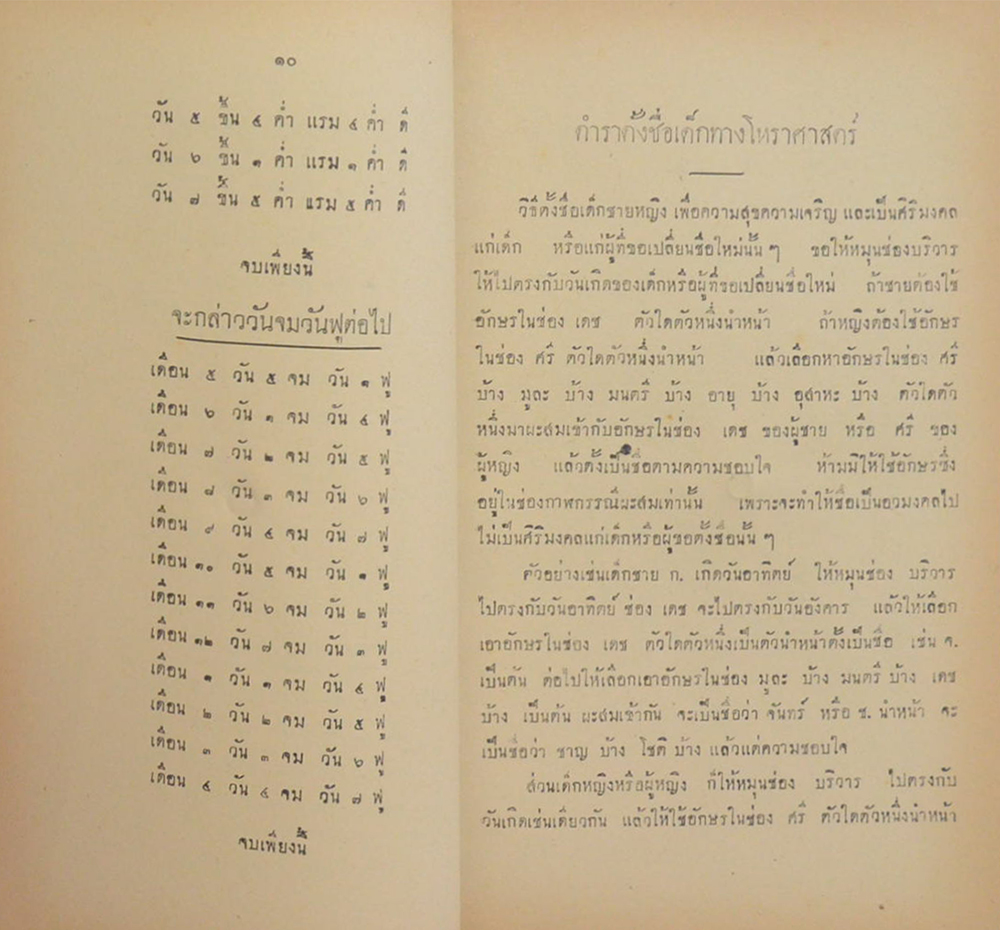 ๑๐
วัน ๕ ขึ้น ๔ ค่ำ แรม ๔ ค่ำ ดี
วัน ๖ ขึ้น ๑ ค่ำ แรม ๑ ค่ำ ดี
วัน ๗ ขึ้น ๕ ค่ำ แรม ๕ ค่ำ ดี
จบเพียงนี้
จะกล่าววันจมวันฟูต่อไป
เดือน ๕ วัน ๕ จม วัน ๑ ฟู
เดือน ๖ วัน ๑ จม วัน ๔ ฟู
เดือน ๗ วัน ๒ จม วัน ๕ ฟู
เดือน ๘ วัน ๓ จม วัน ๖ ฟู
เดือน ๙ วัน ๔ จม วัน ๗ ฟู
เดือน ๑๐ วัน ๕ จม วัน ๑ ฟู
เดือน ๑๑ วัน ๖ จม วัน ๒ ฟู
เดือน ๑๒ วัน ๗ จม วัน ๓ ฟู
เดือน ๑ วัน ๑ จม วัน ๔ ฟู
เดือน ๒ วัน ๒ จม วัน ๕ ฟู
เดือน ๓ วัน ๓ จม วัน ๖ ฟู
เดือน ๔ วัน ๔ จม วัน ๗ ฟู
จบเพียงนี้
ตำราตั้งชื่อเด็กทางโหราศาสตร์
วิธีตั้งชื่อเด็กชายหญิง เพื่อความสุขความเจริญ และเป็นศิริมงคล
แก่เด็ก หรือแก่ผู้ที่ขอเปลี่ยนชื่อใหม่นั้น ๆ ขอให้หมุนช่องบริวาร
ให้ไปตรงกับวันเกิดของเด็กหรือผู้ที่ขอเปลี่ยนชื่อใหม่ ถ้าชายต้องใช้
อักษรในช่อง เดช ตัวใดตัวหนึ่งนำหน้า ถ้าหญิงต้องใช้อักษร
ในช่อง ศรี ตัวใดตัวหนึ่งนำหน้า แล้วเลือกหาอักษรในช่อง ศรี
บ้าง มูละ บ้าง มนตรี บ้าง อายุ บ้าง อุสาหะ บ้าง ตัวใดตัว
หนึ่งมาผะสมเข้ากับอักษรในช่อง เดช ของผู้ชาย หรือ ศรี ของ
ผู้หญิง แล้วตั้งเป็นชื่อตามความชอบใจ ห้ามมิให้ใช้อักษรซึ่ง
อยู่ในช่องกาฬกรรณีผะสมเท่านั้น เพราะจะทำให้ชื่อเป็นอวมงคลไป
ไม่เป็นศิริมงคลแก่เด็กหรือผู้ขอตั้งชื่อนั้น ๆ
ตัวอย่างเช่นเด็กชาย ก. เกิดวันอาทิตย์ ให้หมุนช่อง บริวาร
ไปตรงกับวันอาทิตย์ ช่อง เดช จะไปตรงกับวันอังคาร แล้วให้เลือก
เอาอักษรในช่อง เดช ตัวใดตัวหนึ่งเป็นตัวนำหน้าตั้งเป็นชื่อ เช่น จ.
เป็นต้น ต่อไปให้เลือกเอาอักษรในช่อง มูละ บ้าง มนตรี บ้าง เดช
บ้าง เป็นต้น ผะสมเข้ากัน จะเป็นชื่อว่า จันทร์ หรือ ช. นำหน้า จะ
เป็นชื่อว่า ชาญ บ้าง โชติ บ้าง แล้วแต่ความชอบใจ
ส่วนเด็กหญิงหรือผู้หญิง ก็ให้หมุนช่อง บริวาร ไปตรงกับ
วันเกิดเช่นเดียวกัน แล้วให้ใช้อักษรในช่อง ศรี ตัวใดตัวหนึ่งนำหน้า